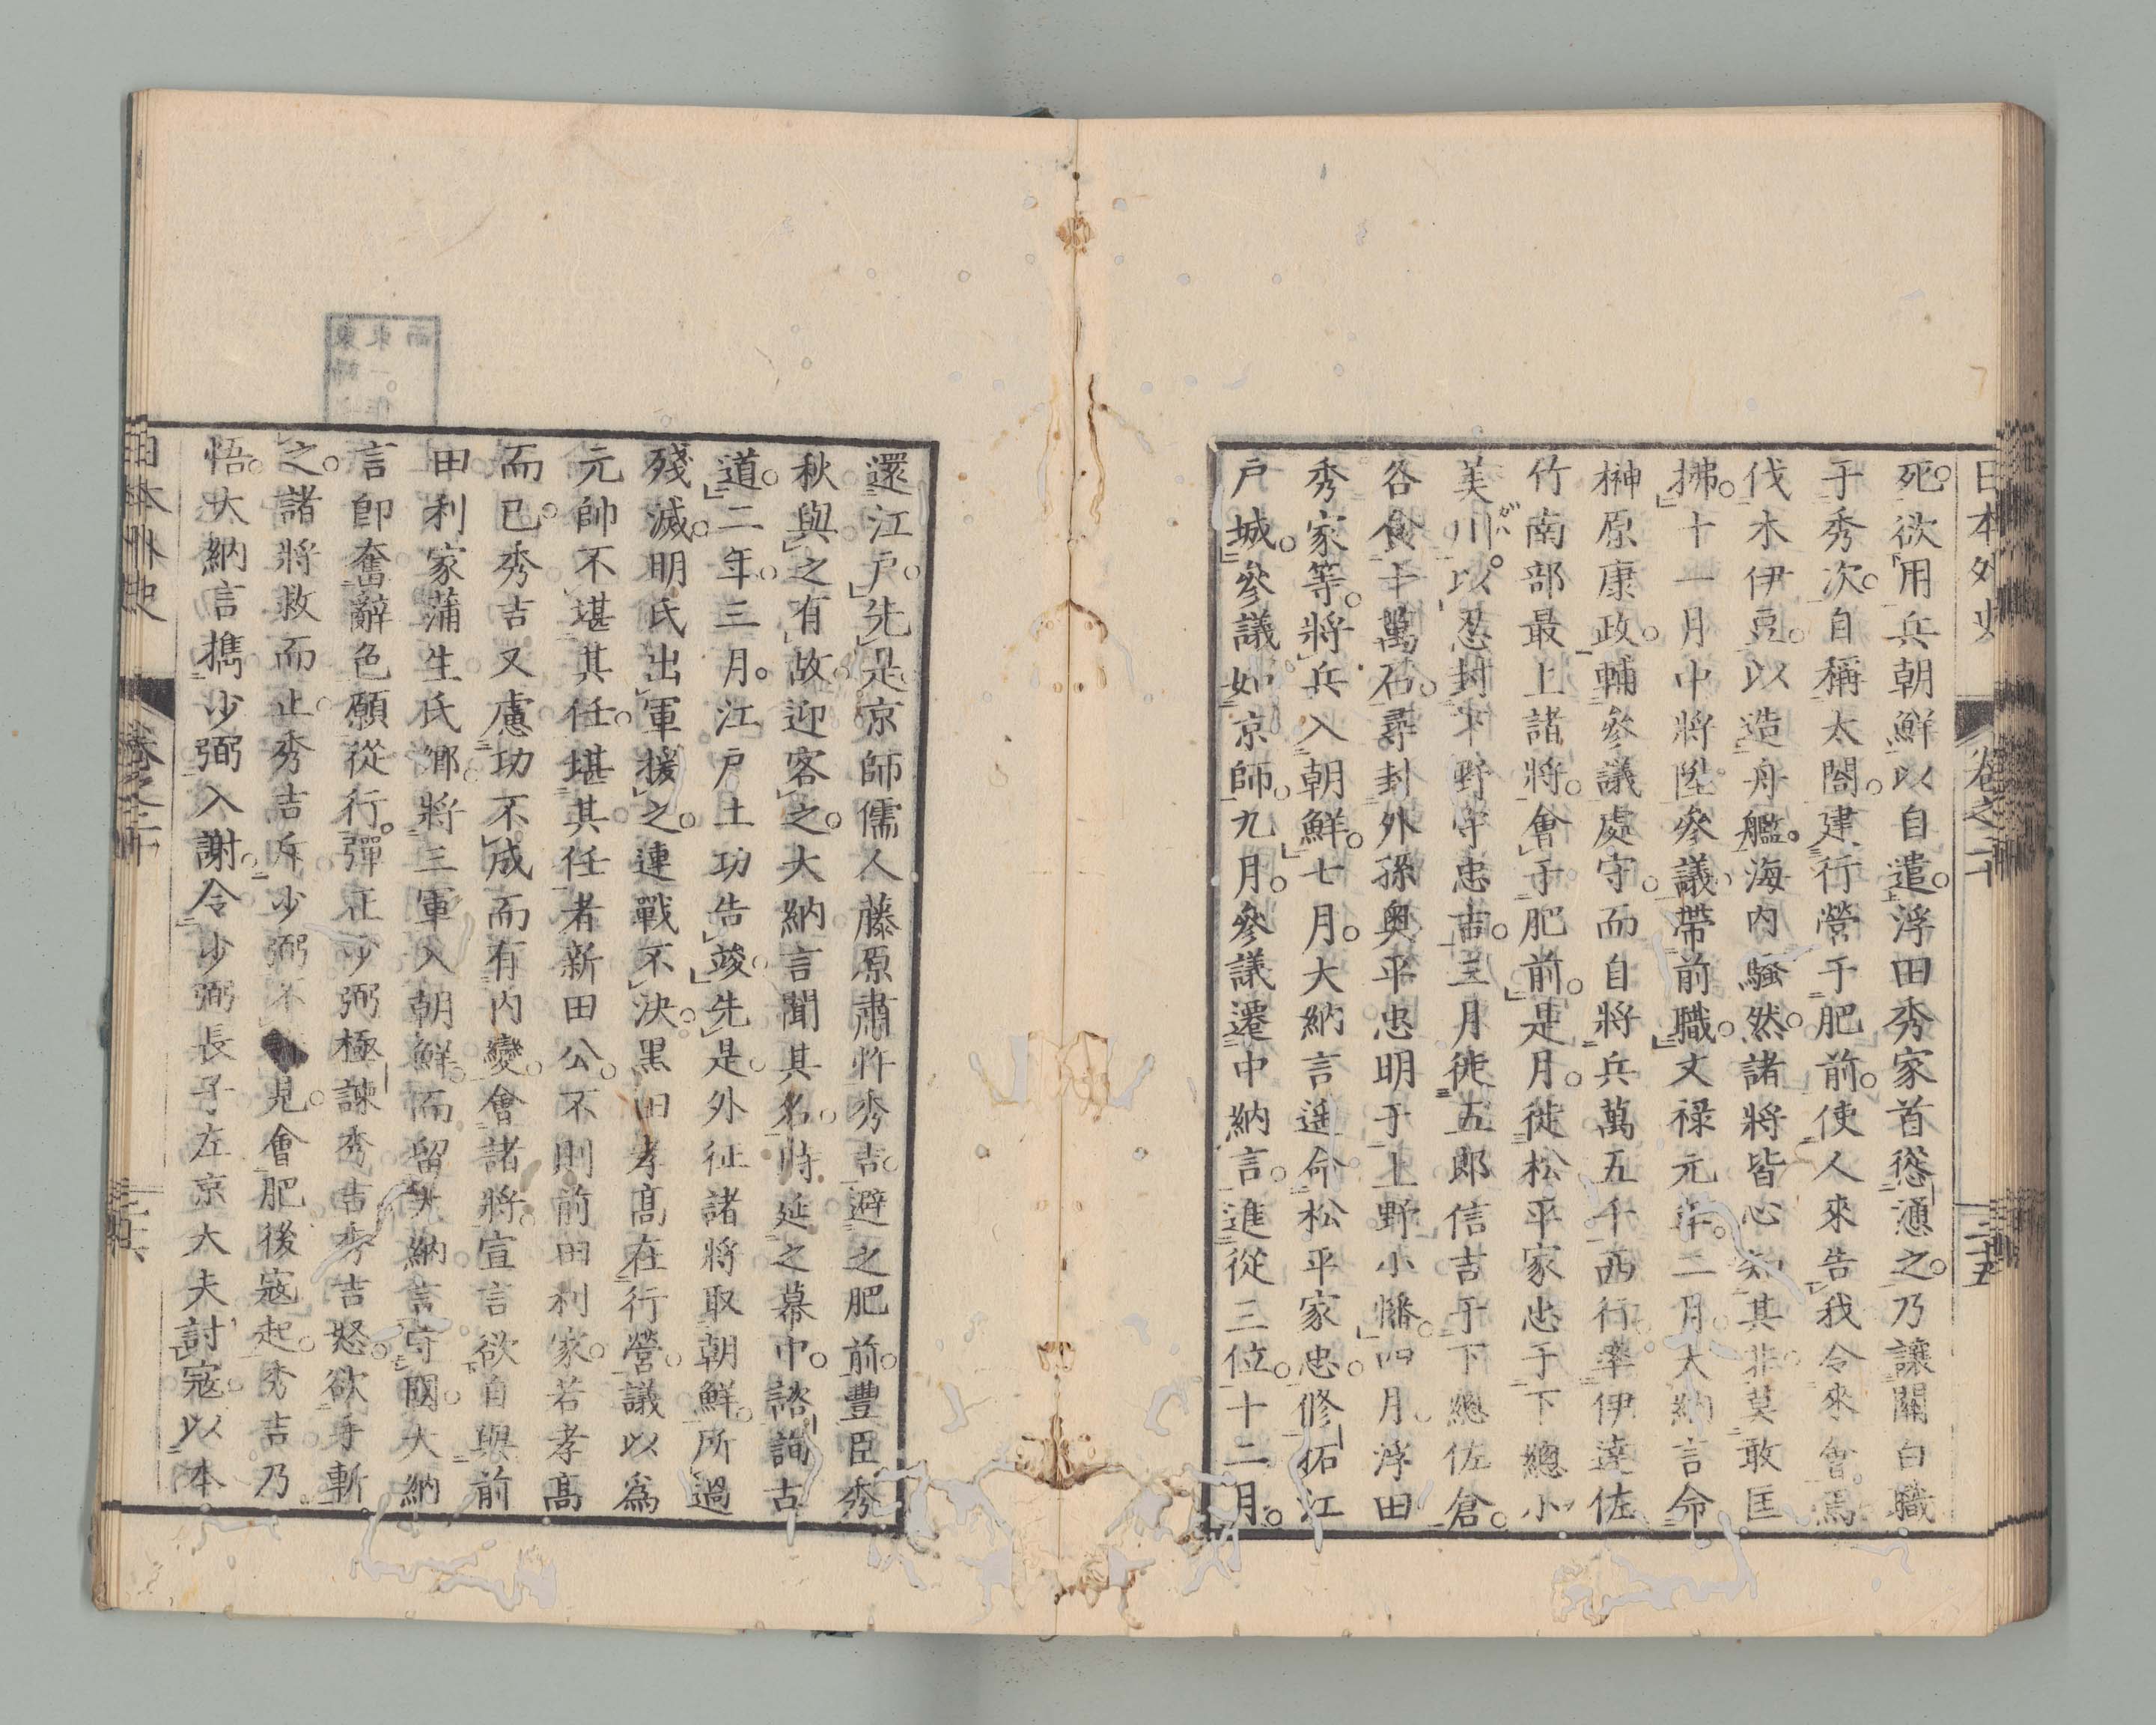 日本外史 卷之二十 三十五
死欲用兵朝鮮以自遣浮田秀家首慫慂之乃讓關白職
于秀次自稱太閤建行營于肥前使人來告我令來會焉
伐木伊豆以造舟艦海内騷然諸將皆心知其非莫敢匡
拂十一月中將陞參議帶前職文禄元年二月大納言命
榊原康政輔參議處守而自將兵萬五千西行率伊達佐
竹南部最上諸將會于肥前是月徙松平家忠于下總小
美川以忍封下野守忠吉三月徙五郎信吉于下總佐倉
各食十萬石尋封外孫奥平忠明于上野小幡四月浮田
秀家等將兵入朝鮮七月大納言遥命松平家忠修拓江
戸城參議如京師九月參議遷中納言進從三位十二月
還江戸先是京師儒人藤原肅忤秀吉避之肥前豐臣秀
秋與之有故迎客之大納言聞其名時延之幕中諮詢古
道二年三月江戸土功告竣先是外征諸將取朝鮮所過
殘滅明氏出軍援之連戰不決黒田孝髙在行營議以爲
元帥不堪其任堪其任者新田公不則前田利家若孝髙
而已秀吉又慮功不成而有内變會諸將宣言欲自與前
田利家蒲生氏鄕將三軍入朝鮮而留大納言守國大納
言卽奮辭色願從行彈正少弼極諫秀吉秀吉怒欲手斬
之諸將救而止秀吉斥少弼不見會肥後寇起秀吉乃
悟大納言攜少弼入謝令少弼長子左京大夫討寇以本
日本外史 卷之二十